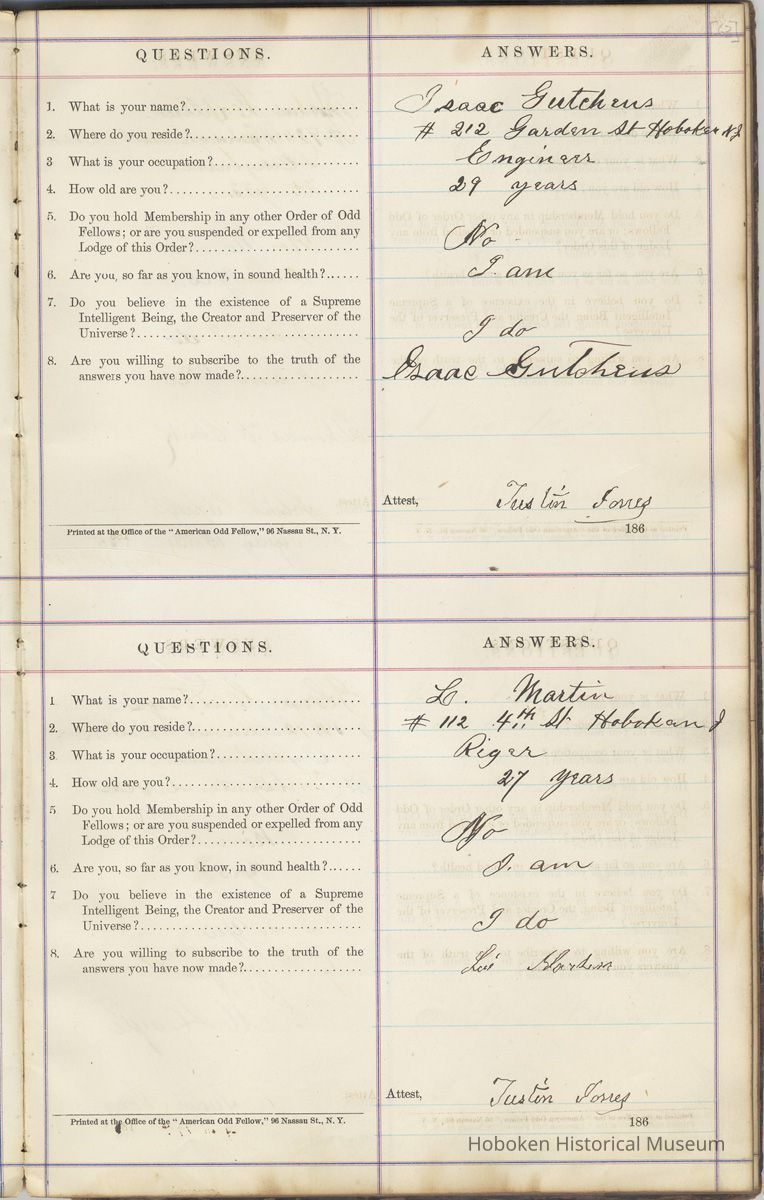 [5]
QUESTIONS. ANSWERS.
1. What is your name?........................... Isaac Gutchens
2. Where do you reside?.......................... # 212 Garden St Hoboken NJ
3 What is your occupation?....................... Engineer
4. How old are you?............................. 29 years
5. Do you hold Membership in any other Order of Odd
Fellows; or are you suspended or expelled from any
Lodge of this Order?.......................... No
6. Are you, so far as you know, in sound health?...... I am
7. Do you believe in the existence of a Supreme
Intelligent Being, the Creator and Preserver of the
Universe?................................... I do
8. Are you willing to subscribe to the truth of the
answers you have now made?................... Isaac Gutchens
Attest, Justin Torres
Printed at the Office of the "American Odd Fellow," 96 Nassau St., N. Y. 186
QUESTIONS. ANSWERS.
1 What is your name?........................... L. Martin
2. Where do you reside?.......................... # 112 4th St Hoboken J
3 What is your occupation?....................... Riger
4. How old are you?............................. 27 years
5 Do you hold Membership in any other Order of Odd
Fellows; or are you suspended or expelled from any
Lodge of this Order?.......................... No
6. Are you, so far as you know, in sound health?...... I. am
7 Do you believe in the existence of a Supreme
Intelligent Being, the Creator and Preserver of the
Universe?................................... I do
8. Are you willing to subscribe to the truth of the
answers you have now made?................... Martin
Attest, Justin Torres
Printed at the Office of the "American Odd Fellow," 96 Nassau St., N. Y. 186
Hoboken Historical Museum